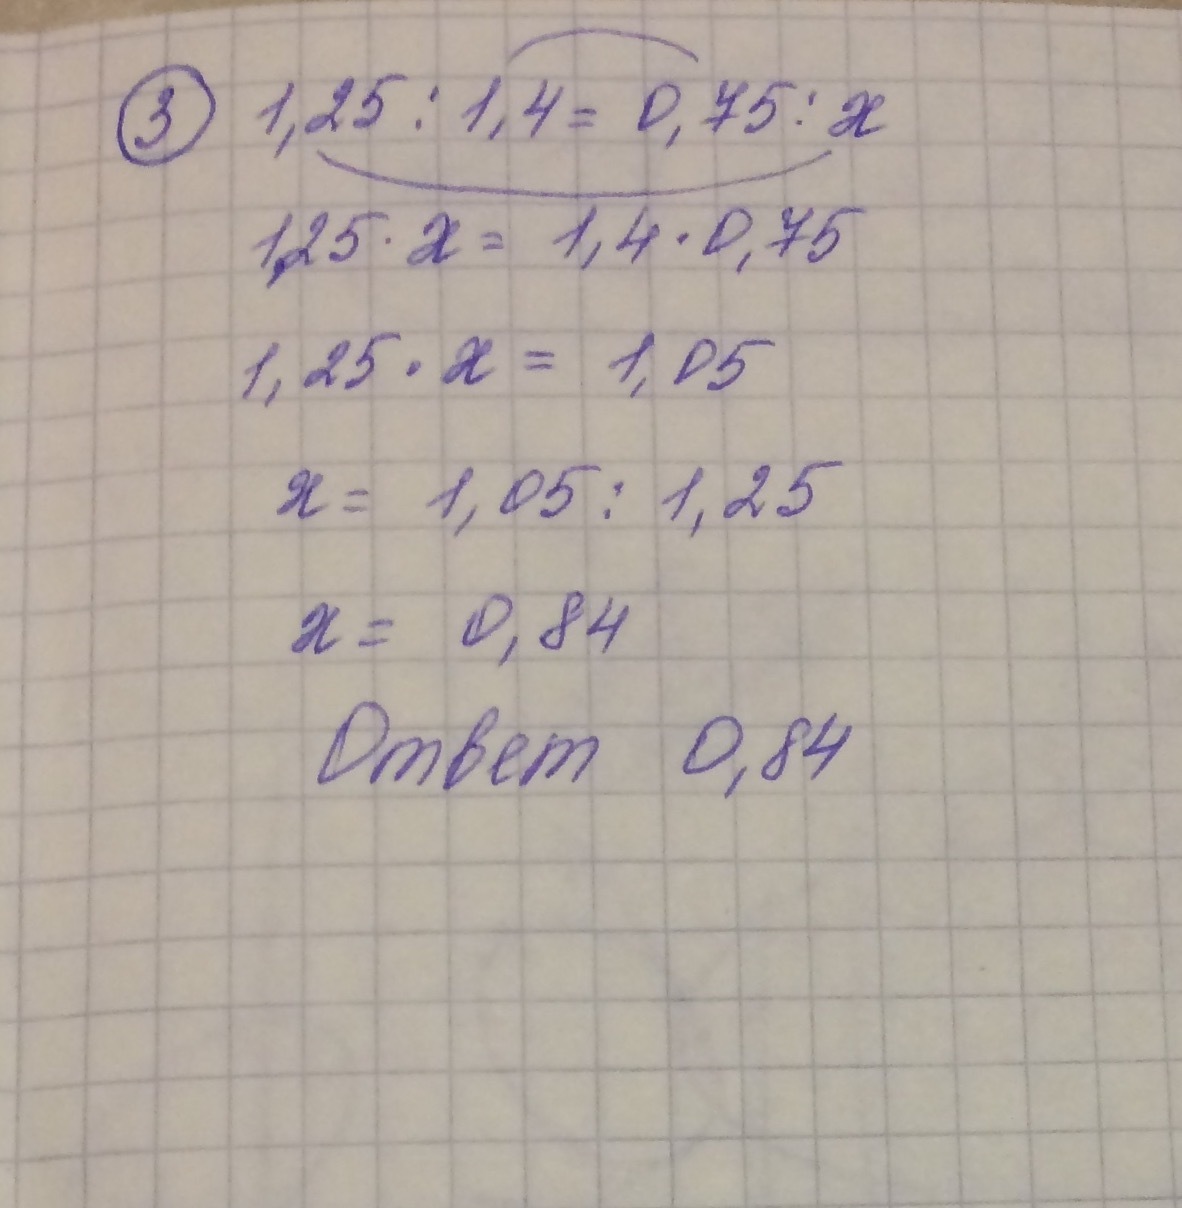 3 1,25 : 1,4 = 0,75 : x
1,25 · x = 1,4 · 0,75
1,25 · x = 1,05
x = 1,05 : 1,25
x = 0,84
Ответ 0,84